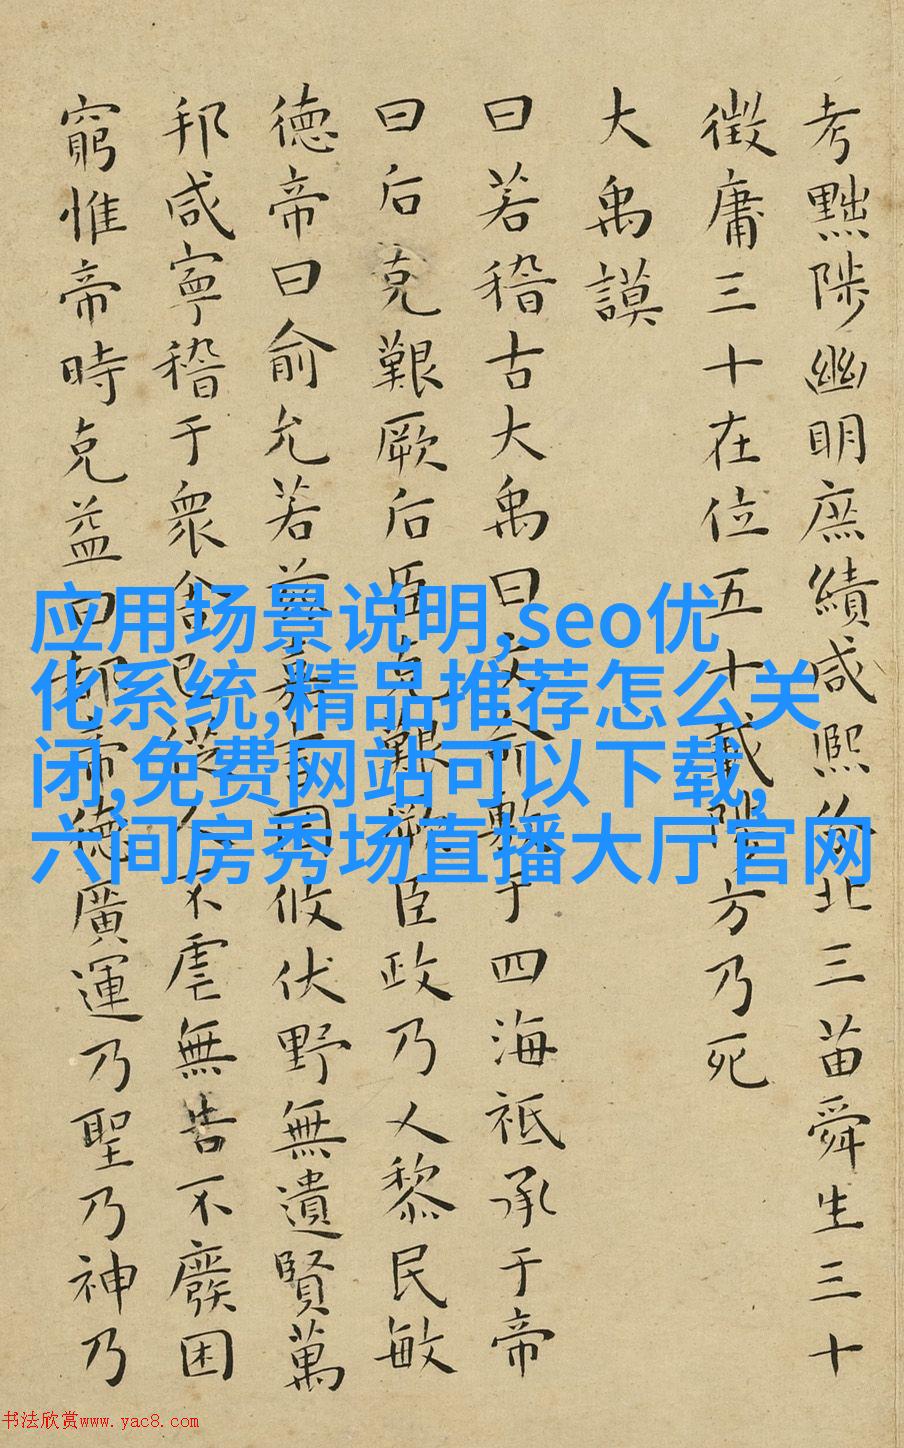 考黜陟幽明庶績咸熙分北三苗舜生三十
徵庸三十在位五十載陟方乃死
大禹謨
曰若稽古大禹曰文命敷于四海祗承于帝
曰后克艱厥后臣克艱厥臣政乃乂黎民敏
德帝曰俞允若茲嘉言罔攸伏野無遺賢萬
邦咸寧稽于衆舍己從人不虐無告不廢困
窮惟帝時克益曰都帝德廣運乃聖乃神乃
应用场景说明,seo优
化系统,精品推荐怎么关
闭,免费网站可以下载,
六间房秀场直播大厅官网
书法欣赏www.yac8.com